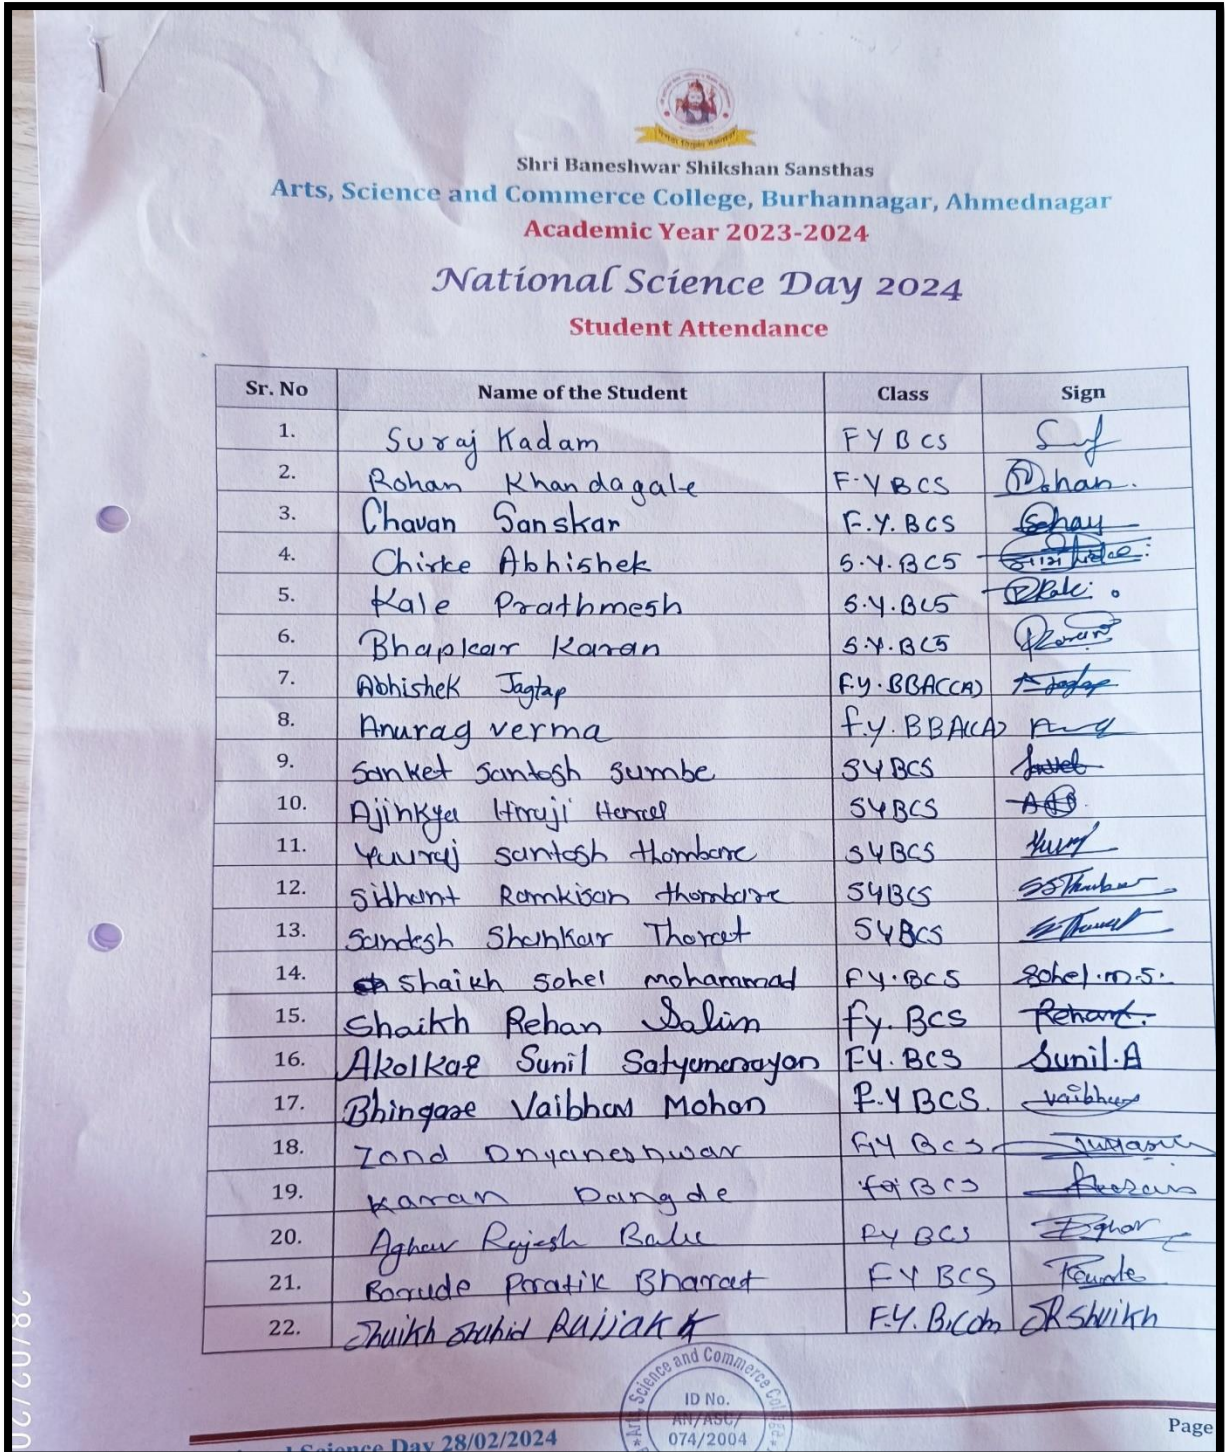 Shri Baneshwar Shikshan Sansthas
Arts, Science and Commerce College, Burhannagar, Ahmednagar
Academic Year 2023-2024
National Science Day 2024
Student Attendance
Sr. No Name of the Student Class Sign
1. Suraj Kadam FYBCS
2. Rohan Khandagale F.YBCS Rohan.
3. Chavan Sanskar F.Y.BCS
4. Chirke Abhishek S.Y.BCS
5. Kale Prathmesh S.Y.BCS
6. Bhapkar Karan S.Y.BCS
7. Abhishek Jagtap F.Y.BBA(CA)
8. Anurag verma f.y.BBA(CA)
9. Sanket Santosh Sumbe SYBCS
10. Ajinkya SYBCS
11. Yuvraj Santosh thombare SYBCS
12. Sidhant Ramkisan thombare SYBCS
13. Sandesh Shankar Thorat SYBCS
14. Shaikh Sohel mohammad FY.BCS Sohel.m.s.
15. Shaikh Rehan Salim fy.BCS
16. Akolkar Sunil Satyanarayan FY.BCS Sunil.A
17. Bhingare Vaibhav Mohan F.Y BCS. Vaibhav
18. Zond Dnyaneshwar FY BCS
19. Karan Dangde BCS
20. Aghav Rajesh FY BCS
21. Borude Paratik Bharat FY BCS
22. Shaikh Shahid Rajjak F.Y. B.Com SRShaikh
Arts, Science and Commerce
ID No.
AN/ASC/
074/2004
Science Day 28/02/2024 Page
28/02/20